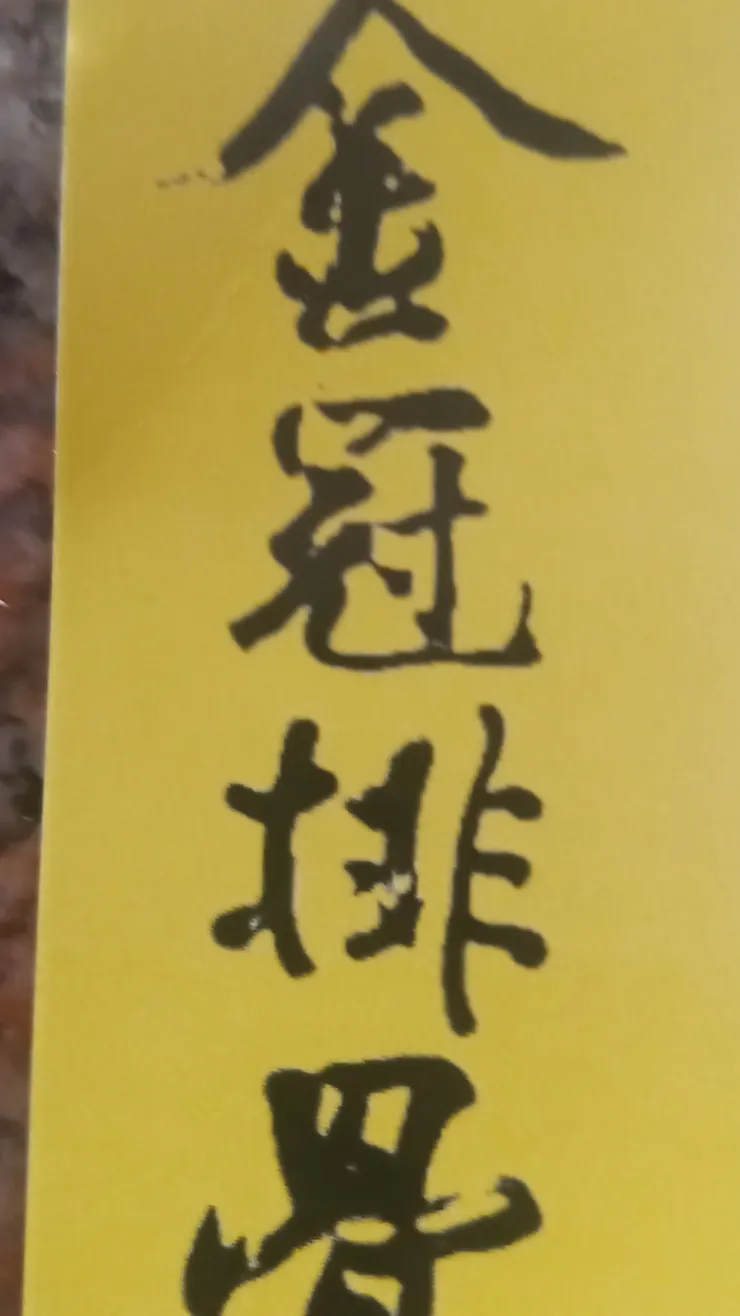 金冠排骨